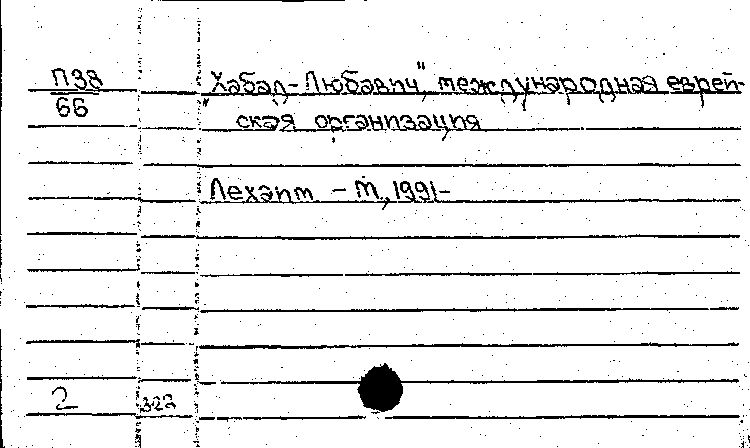 П38 "Хабад-Любавич", международная еврей-
66 ская организация
Лехаим - М., 1991-
2 322